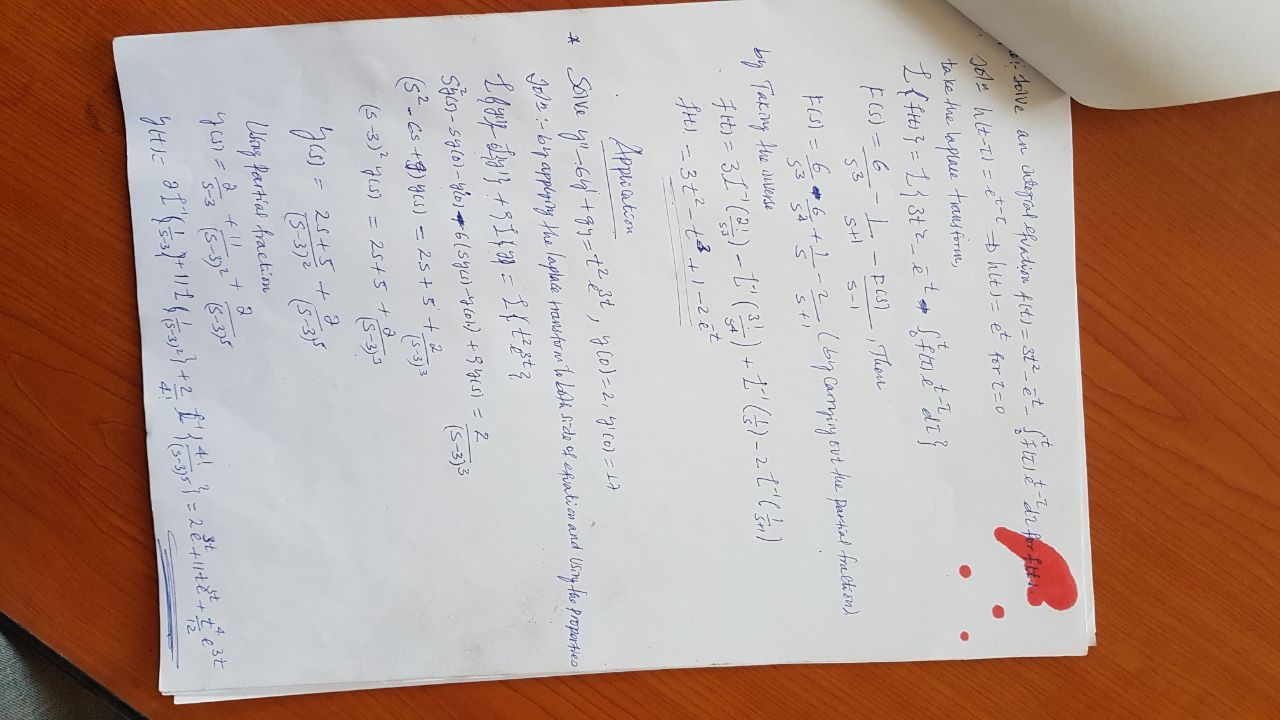 solve an integral equation f(t) = 3t² - e^-t - ∫₀ᵗ f(τ) e^t-τ dτ for f(t).
Sol'n h(t-τ) = e^t-τ → h(t) = e^t for τ=0
take the laplace transform,
L{f(t)} = L{3t² - e^-t - ∫₀ᵗ f(τ) e^t-τ dτ}
F(s) = 6/s³ - 1/(s+1) - F(s)/(s-1), Then
F(s) = 6/s³ - 6/s⁴ + 1/s - 2/(s+1) (by carrying out the partial fraction)
by Taking the inverse
f(t) = 3L⁻¹(2!/s³) - L⁻¹(3!/s⁴) + L⁻¹(1/s) - 2L⁻¹(1/(s+1))
f(t) = 3t² - t³ + 1 - 2e^-t
Application
* Solve y'' - 6y' + 9y = t²e^3t, y(0) = 2, y'(0) = 17
Sol'n:- by applying the laplace transform to both side of equation and using the properties
L{y''} - 6L{y'} + 9L{y} = L{t²e^3t}
s²y(s) - sy(0) - y'(0) - 6(sy(s) - y(0)) + 9y(s) = 2/(s-3)³
(s² - 6s + 9) y(s) = 2s + 5 + 2/(s-3)³
(s-3)² y(s) = 2s + 5 + 2/(s-3)³
y(s) = (2s+5)/(s-3)² + 2/(s-3)⁵
Using partial fraction
y(s) = 2/(s-3) + 11/(s-3)² + 2/(s-3)⁵
y(t) = 2L⁻¹{1/(s-3)} + 11L⁻¹{1/(s-3)²} + 2/4! L⁻¹{4!/(s-3)⁵} = 2e^3t + 11te^3t + t⁴/12 e^3t